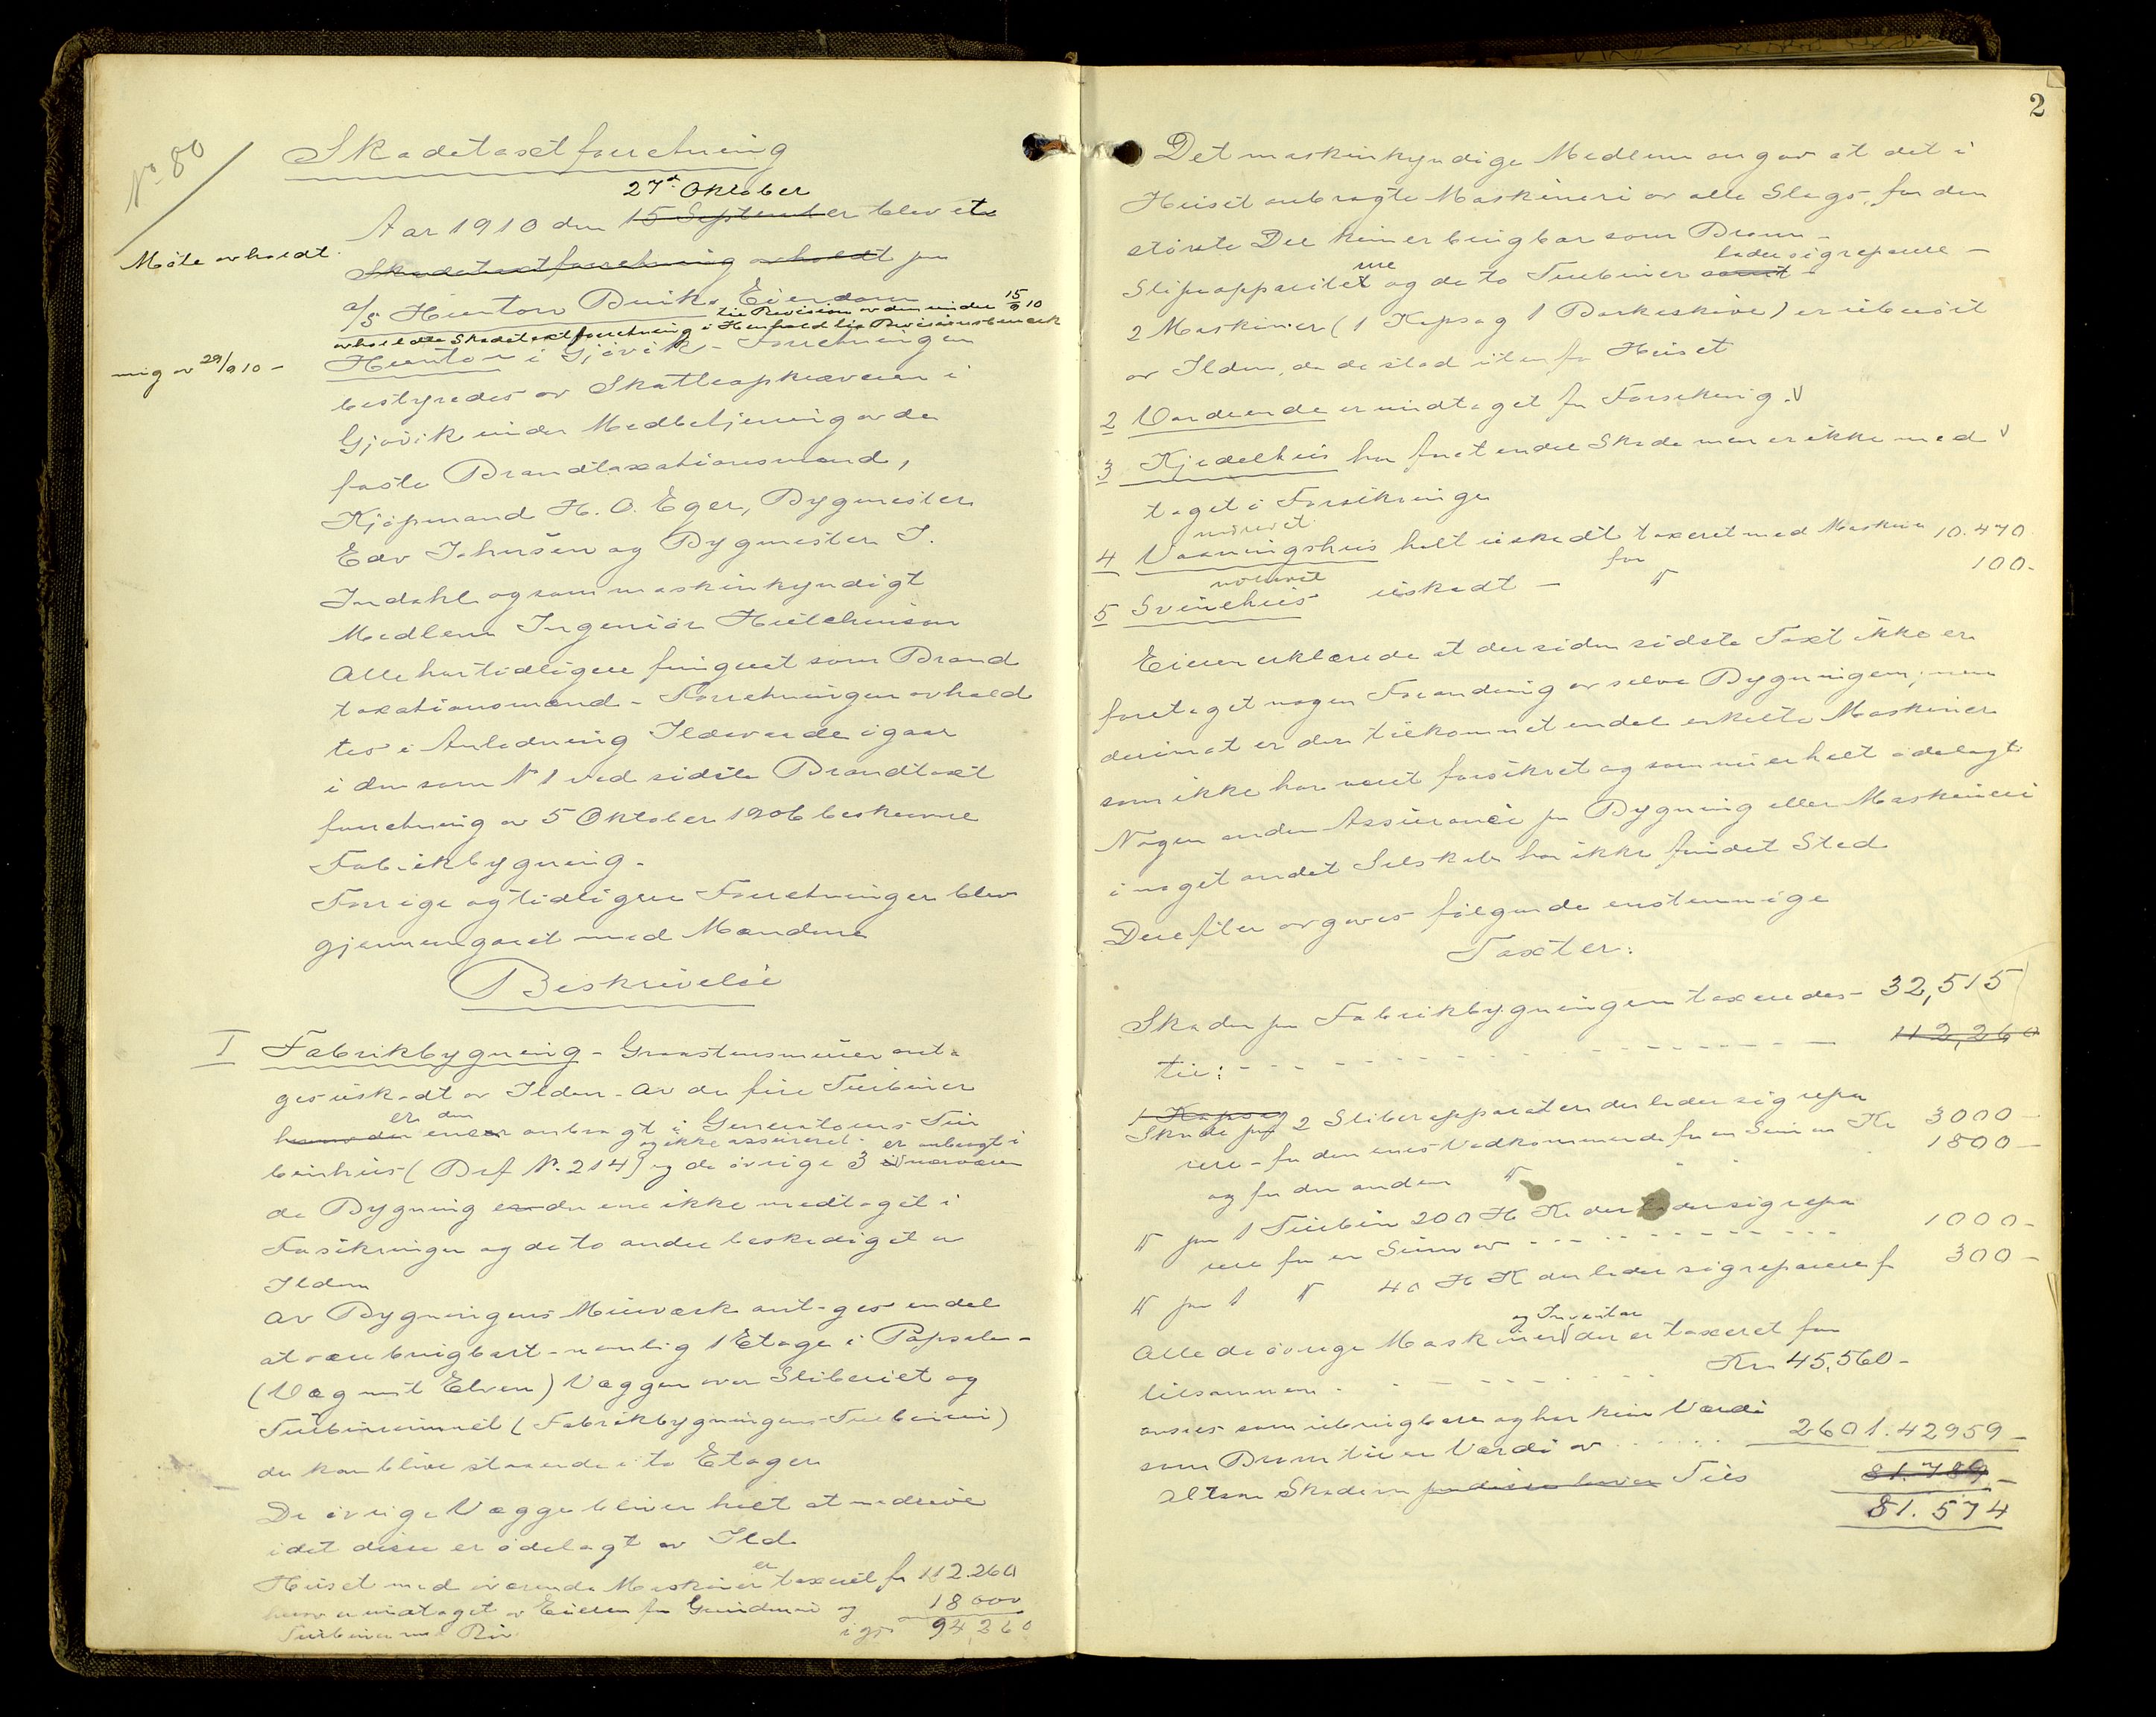 No 80
Skadetaxtforretning
27de Oktober
Aar 1910 den 15 September blev et
Møte avholdt.
Skadetaxtforretning avholdt paa
a/s Hunton Bruks Eiendom
til Revision av den under 15/9 10
avholdte Skadetaxtforretning i Henhold til Revisionsbemerk
ning av 29/9 10 –
Hunton i Gjøvik – Forretningen
bestyredes av Skatteopkræveren i
Gjøvik under Medbetjening av de
faste Brandtaxationsmænd,
Kjøpmand H. O. Eger, Bygmester
Edv Johnsen og Bygmester J.
Indahl og som maskinkyndigt
Medlem Ingeniør Hutchinson
Alle har tidligere fungeret som Brand
taxationsmænd – Forretningen avhold
tes i Anledning Ildsvaade igaar
i den som No 1 ved sidste Brandtaxt
forretning av 5 Oktober 1906 beskrevne
Fabrikbygning –
Forrige og tidligere Forretninger blev
gjennemgaaet med Mændene
Beskrivelse
I Fabrikbygning – Graastensmuren anta
ges uskadt av Ilden – Av de fire Turbiner
er den
hvorav den ene er anbragt i Generatorens Tur
og ikke assureret – er anbragt i
binhus (Brf No. 214) og de øvrige 3 i nærværen
de Bygning er den ene ikke medtaget i
Forsikringen og de to andre beskadiget av
Ilden
Av Bygningens Murværk antages endel
at være brugbart – nemlig 1 Etage i Papsalen –
(Væg mot Elven) Væggen over Sliberiet og
Turbinrummet (Fabrikbygningens Turbiner)
der kan blive staaende i to Etager
De øvrige Vægge bliver helt at nedrive
idet disse er ødelagt av Ild
er
Huset med iværende Maskiner taxeret for 112.260
herav undtaget av Eieren for Grundmur og 18000
Turbiner med Rør igj. 94,260
2
Det maskinkyndige Medlem angav at det i
Huset anbragte Maskineri av alle Slags, for den
største Del kun er brugbar som Brom –
ne lader sig reparere –
Slipeapparatet og de to Turbiner samt –
2 Maskiner (1 Kapsag 1 Barkeskive) er uberørt
av Ilden, da de stod utenfor Huset
2 Vandrende er undtaget fra Forsikring. v
3 Kjedelhus har faaet endel Skade men er ikke med v
taget i Forsikringen
urørt
4 Vaaningshus helt uskadt taxeret med Maskiner 10.470
urørt for
5 Svinehus uskadt – " 100 –
Eieren erklærede at der siden sidste Taxt ikke er
foretaget nogen Forandring av selve Bygningen, men
derimot er der tilkommet endel enkelte Maskiner
som ikke har været forsikret og som nu er helt ødelagt
Nogen anden Assurance paa Bygning eller Maskineri
i noget andet Selskab har ikke fundet Sted
Derefter avgaves følgende enstemmige
Taxter:
Skaden paa Fabrikbygningen taxeredes – 32,515
til: – – – – – – – – 112,260
1 Kapsag
Skade paa 2 Sliberapparater der lader sig repa
rere – for den enes Vedkommende for en Sum av Kr 3000 –
og for den anden " 1800 –
" paa 1 Turbin 200 HK der lader sig repa
rere for en Sum av – – – – – 1000 –
" paa 1 " 40 HK der lader sig reparere f 300 –
og Inventar
Alle de øvrige Maskiner der er taxeret for
tilsammen – – – – – Kr 45,560 –
ansees som ubrugbare og har kun Værdi
som Brom til en Værdi av . . . . . 2601. 42959 –
Altsaa Skaden paa disse Tils 81.789 –
81.574